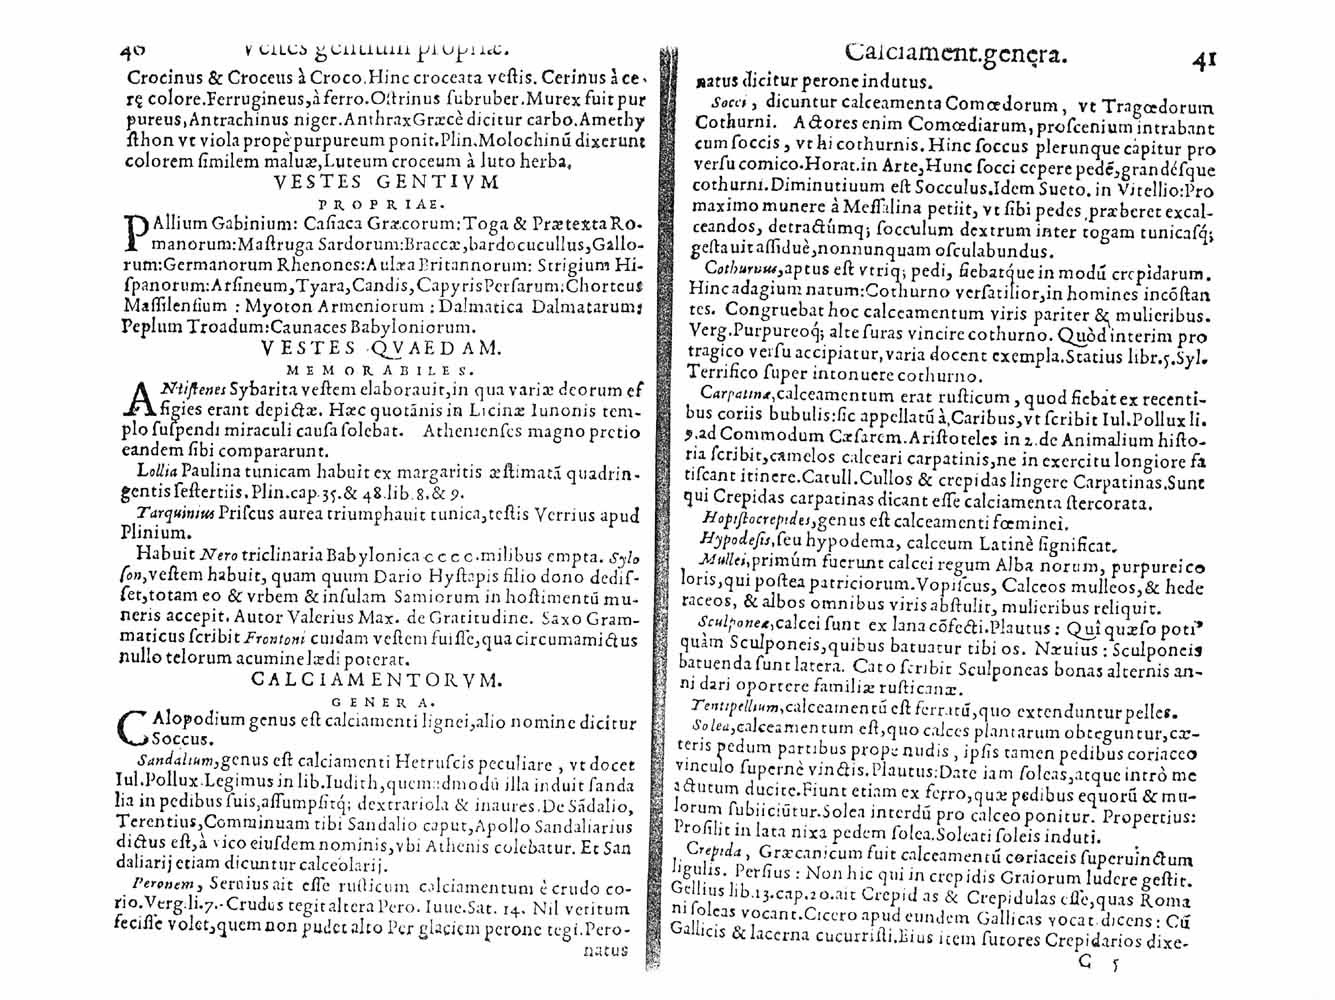 40 Vestes gentium propriæ.
Crocinus & Croceus à Croco.Hinc croceata vestis. Cerinus à ce-
rę colore.Ferrugineus,à ferro.Ostrinus subruber.Murex fuit pur
pureus,Antrachinus niger.AnthraxGræcè dicitur carbo.Amethy
sthon vt viola propè purpureum ponit.Plin.Molochinũ dixerunt
colorem similem maluæ,Luteum croceum à luto herba.
VESTES GENTIVM
PROPRIAE.
PAllium Gabinium: Casiaca Græcorum:Toga & Prætexta Ro-
manorum:Mastruga Sardorum:Braccæ,bardocucullus,Gallo-
rum:Germanorum Rhenones:Aulæa Britannorum: Strigium Hi-
spanorum:Arsineum,Tyara,Candis,CapyrisPersarum:Chorteus
Massilensium : Myoton Armeniorum : Dalmatica Dalmatarum:
Peplum Troadum:Caunaces Babyloniorum.
VESTES QVAEDAM.
MEMORABILES.
ANtistenes Sybarita vestem elaborauit,in qua variæ deorum ef
figies erant depictæ. Hæc quotãnis in Licinæ Iunonis tem-
plo suspendi miraculi causa solebat. Athenienses magno pretio
eandem sibi compararunt.
Lollia Paulina tunicam habuit ex margaritis æstimatã quadrin-
gentis sestertiis.Plin.cap.35.& 48.lib.8.& 9.
Tarquinius Priscus aurea triumphauit tunica,testis Verrius apud
Plinium.
Habuit Nero triclinaria Babylonica cccc.milibus empta. Sylo
son,vestem habuit, quam quum Dario Hystapis filio dono dedis-
set,totam eo & vrbem & insulam Samiorum in hostimentũ mu-
neris accepit. Autor Valerius Max. de Gratitudine. Saxo Gram-
maticus scribit Frontoni cuidam vestem fuisse,qua circumamictus
nullo telorum acumine lædi poterat.
CALCIAMENTORVM.
GENERA.
CAlopodium genus est calciamenti lignei,alio nomine dicitur
Soccus.
Sandalium,genus est calciamenti Hetruscis peculiare , vt docet
Iul.Pollux.Legimus in lib.Iudith,quemadmodũ illa induit sanda
lia in pedibus suis,assumpsitq; dextrariola & inaures.De Sãdalio,
Terentius,Comminuam tibi Sandalio caput,Apollo Sandaliarius
dictus est,à vico eiusdem nominis,vbi Athenis colebatur. Et San
daliarij etiam dicuntur calceolarij.
Peronem, Seruius ait esse rusticum calciamentum è crudo co-
rio.Verg.li.7.-Crudus tegit altera Pero. Iuue.Sat. 14. Nil vetitum
fecisse volet,quem non pudet alto Per glaciem perone tegi.Pero-
natus
Calciament.genera. 41
natus dicitur perone indutus.
Socci , dicuntur calceamenta Comœdorum, vt Tragœdorum
Cothurni. Actores enim Comœdiarum, proscenium intrabant
cum soccis , vt hi cothurnis. Hinc soccus plerunque capitur pro
versu comico.Horat.in Arte,Hunc socci cepere pedẽ,grandésque
cothurni.Diminutiuum est Socculus.Idem Sueto. in Vitellio:Pro
maximo munere à Messalina petiit, vt sibi pedes præberet excal-
ceandos, detractúmq; socculum dextrum inter togam tunicásq;
gestauit assiduè,nonnunquam osculabundus.
Cothurnus,aptus est vtriq; pedi, fiebatque in modũ crepidarum.
Hinc adagium natum:Cothurno versatilior,in homines incõstan
tes. Congruebat hoc calceamentum viris pariter & mulieribus.
Verg.Purpureoq; alte suras vincire cothurno. Quòd interim pro
tragico versu accipiatur,varia docent exempla.Statius libr.5.Syl.
Terrifico super intonuere cothurno.
Carpatinæ,calceamentum erat rusticum , quod fiebat ex recenti-
bus coriis bubulis:sic appellatũ à Caribus,vt scribit Iul.Pollux li.
9.ad Commodum Cæsarem.Aristoteles in 2.de Animalium histo-
ria scribit,camelos calceari carpatinis,ne in exercitu longiore fa
tiscant itinere.Catull.Cullos & crepidas lingere Carpatinas.Sunt
qui Crepidas carpatinas dicant esse calciamenta stercorata.
Hopistocrepides,genus est calceamenti fœminei.
Hypodesis,seu hypodema, calceum Latinè significat.
Mullei,primùm fuerunt calcei regum Alba norum, purpurei co
loris,qui postea patriciorum.Vopiscus, Calceos mulleos,& hede
raceos, & albos omnibus viris abstulit, mulieribus reliquit.
Sculponeæ,calcei sunt ex lana cõfecti.Plautus : Qui quæso poti'
quàm Sculponeis,quibus batuatur tibi os. Næuius : Sculponeis
batuenda sunt latera. Cato scribit Sculponeas bonas alternis an-
ni dari oportere familiæ rusticanæ.
Tentipellium,calceamentũ est ferratũ,quo extenduntur pelles.
Solea,calceamentum est,quo calces plantarum obteguntur,cæ-
teris pedum partibus prope nudis , ipsis tamen pedibus coriaceo
vinculo supernè vinctis.Plautus:Date iam soleas,atque intrò me
actutum ducite.Fiunt etiam ex ferro,quæ pedibus equorũ & mu-
lorum subiiciũtur.Solea interdũ pro calceo ponitur. Propertius:
Prosilit in lata nixa pedem solea.Soleati soleis induti.
Crepida , Græcanicum fuit calceamentũ coriaceis superuinctum
ligulis. Persius : Non hic qui in crepidis Graiorum ludere gestit.
Gellius lib.13.cap.20.ait Crepid as & Crepidulas esse,quas Roma
ni soleas vocant.Cicero apud eundem Gallicas vocat dicens : Cũ
Gallicis & lacerna cucurristi.Eius item sutores Crepidarios dixe-
C 5